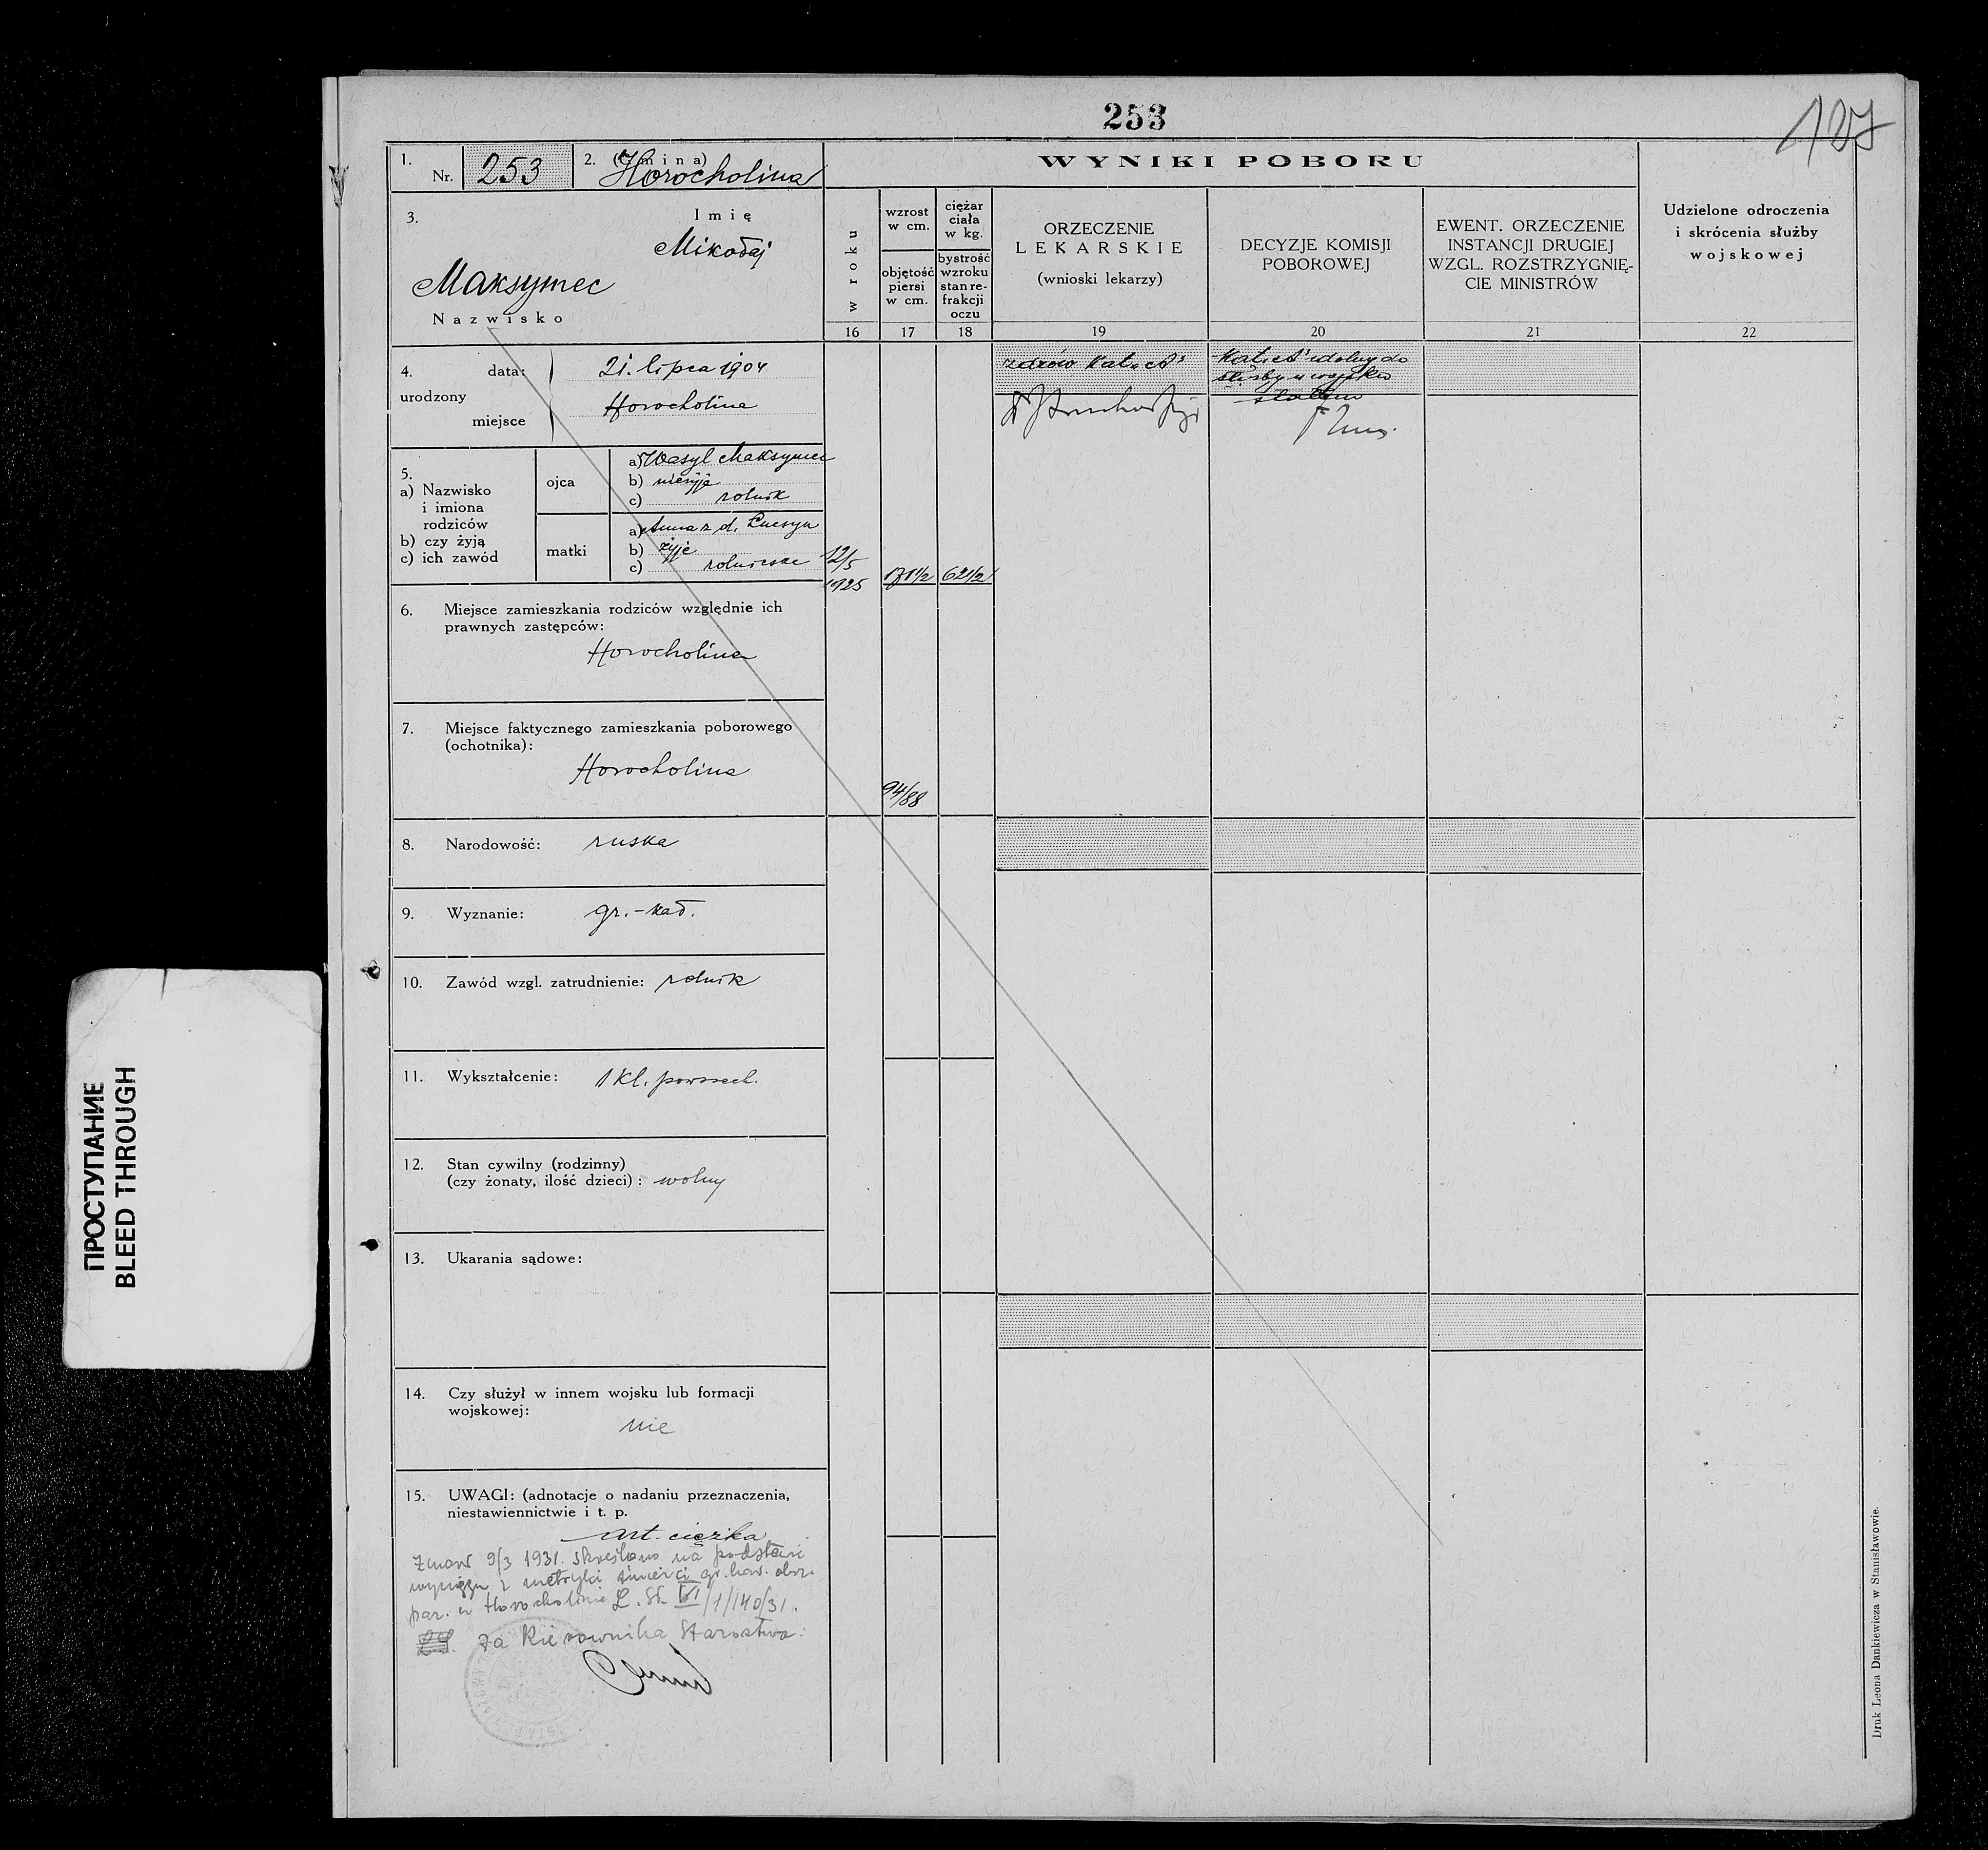 253
127
1. Nr. 253
2. (Gmina) Horocholina
WYNIKI POBORU
3. Imię
Mikołaj
Maksymec
Nazwisko
w roku
wzrost w cm.
objętość piersi w cm.
ciężar ciała w kg.
bystrość wzroku stan re-frakcji oczu
ORZECZENIE
LEKARSKIE
(wnioski lekarzy)
DECYZJE KOMISJI
POBOROWEJ
EWENT. ORZECZENIE
INSTANCJI DRUGIEJ
WZGL. ROZSTRZYGNIĘ-
CIE MINISTRÓW
Udzielone odroczenia
i skrócenia służby
wojskowej
16 17 18 19 20 21 22
4. data: 21. lipca 1904
urodzony
miejsce Horocholina
zdrów kat. "A"
kat. "A" zdolny do
służby w wojsku
stałem
5.
a) Nazwisko
i imiona
rodziców
b) czy żyją
c) ich zawód
ojca
a) Wasyl Maksymec
b) nieżyje
c) rolnik
matki
a) Anna z d.
b) żyje
c) rolniczka
12/5
1925
171 1/2
62 1/2
6. Miejsce zamieszkania rodziców względnie ich
prawnych zastępców:
Horocholina
7. Miejsce faktycznego zamieszkania poborowego
(ochotnika):
Horocholina
94/88
8. Narodowość: ruska
9. Wyznanie: gr.-kat.
10. Zawód wzgl. zatrudnienie: rolnik
11. Wykształcenie: 1 kl. powszech.
12. Stan cywilny (rodzinny)
(czy żonaty, ilość dzieci): wolny
13. Ukarania sądowe:
14. Czy służył w innem wojsku lub formacji
wojskowej:
nie
15. UWAGI: (adnotacje o nadaniu przeznaczenia,
niestawiennictwie i t. p.
art. ciężka
Zmarł 9/3 1931. skreślono na podstawie
wyciągu z metryki śmierci gr. kat. obrz.
par. w Horocholinie L. St. VI/1/140/31.
za Kierownika Starostwa:
Druk Leona Dankiewicza w Stanisławowie.
ПРОСТУПАНИЕ
BLEED THROUGH